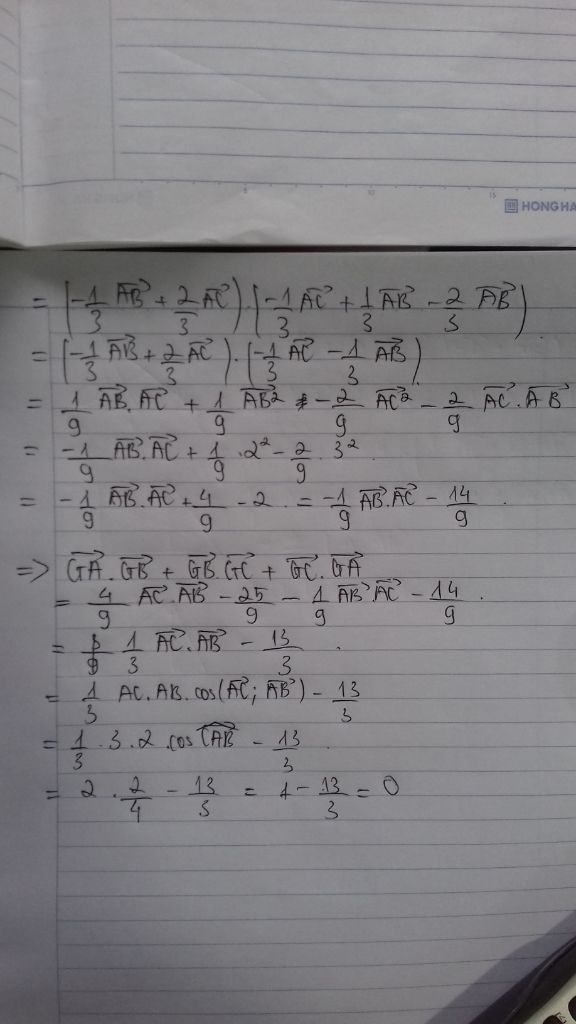 5 10 15 HONG HA
= (-1/3 AB⃗ + 2/3 AC⃗) . (-1/3 AC⃗ + 1/3 AB⃗ - 2/3 AB⃗)
= (-1/3 AB⃗ + 2/3 AC⃗) . (-1/3 AC⃗ - 1/3 AB⃗)
= 1/9 AB⃗.AC⃗ + 1/9 AB⃗² - 2/9 AC⃗² - 2/9 AC⃗.AB⃗
= -1/9 AB⃗.AC⃗ + 1/9 .2² - 2/9 . 3²
= -1/9 AB⃗.AC⃗ + 4/9 - 2 = -1/9 AB⃗.AC⃗ - 14/9 .
=> GA⃗.GB⃗ + GB⃗.GC⃗ + GC⃗.GA⃗
= 4/9 AC⃗.AB⃗ - 25/9 - 1/9 AB⃗ AC⃗ - 14/9 .
= 1/3 AC⃗.AB⃗ - 13/3 .
= 1/3 AC.AB.cos(AC⃗; AB⃗) - 13/3
= 1/3 . 3 . 2 . cos CAB - 13/3 .
= 2 . 2/4 - 13/3 = 1 - 13/3 = 0